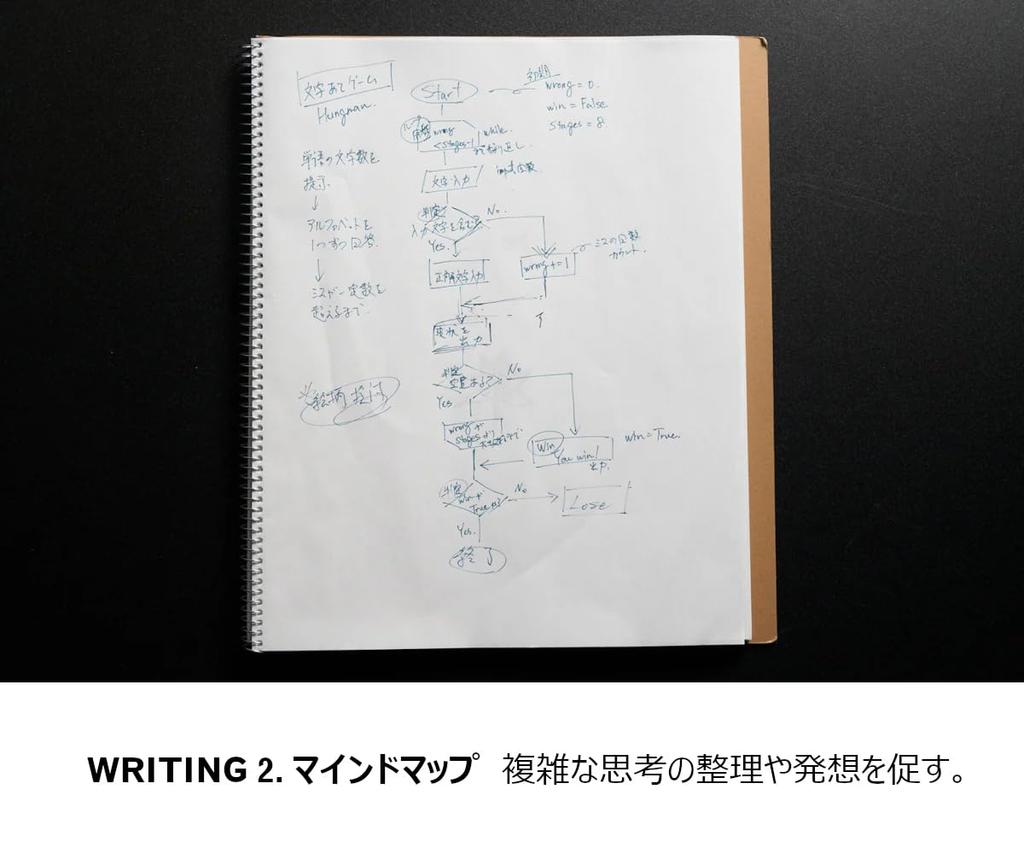 文字あてゲーム
Hungman.
単語の文字数を
提示.
↓
アルファベットを
1つずつ回答.
↓
ミスが一定数を
超えるまで.
※絵柄
Start
初期
wrong = 0.
win = False
stages = 8.
ループ
wrong
< stages-1
while.
で繰り返し.
文字入力
判定
入力文字を含む?
No.
Yes.
正解文字入力
wrong += 1
ミスの回数
カウント.
現状を
出力
判定
空室ある?
No
Yes
wrong が
stages より
Win
You win!
出力.
win = True.
判定
win が
True
No
Lose
Yes.
終了
WRITING 2. マインドマップ 複雑な思考の整理や発想を促す。